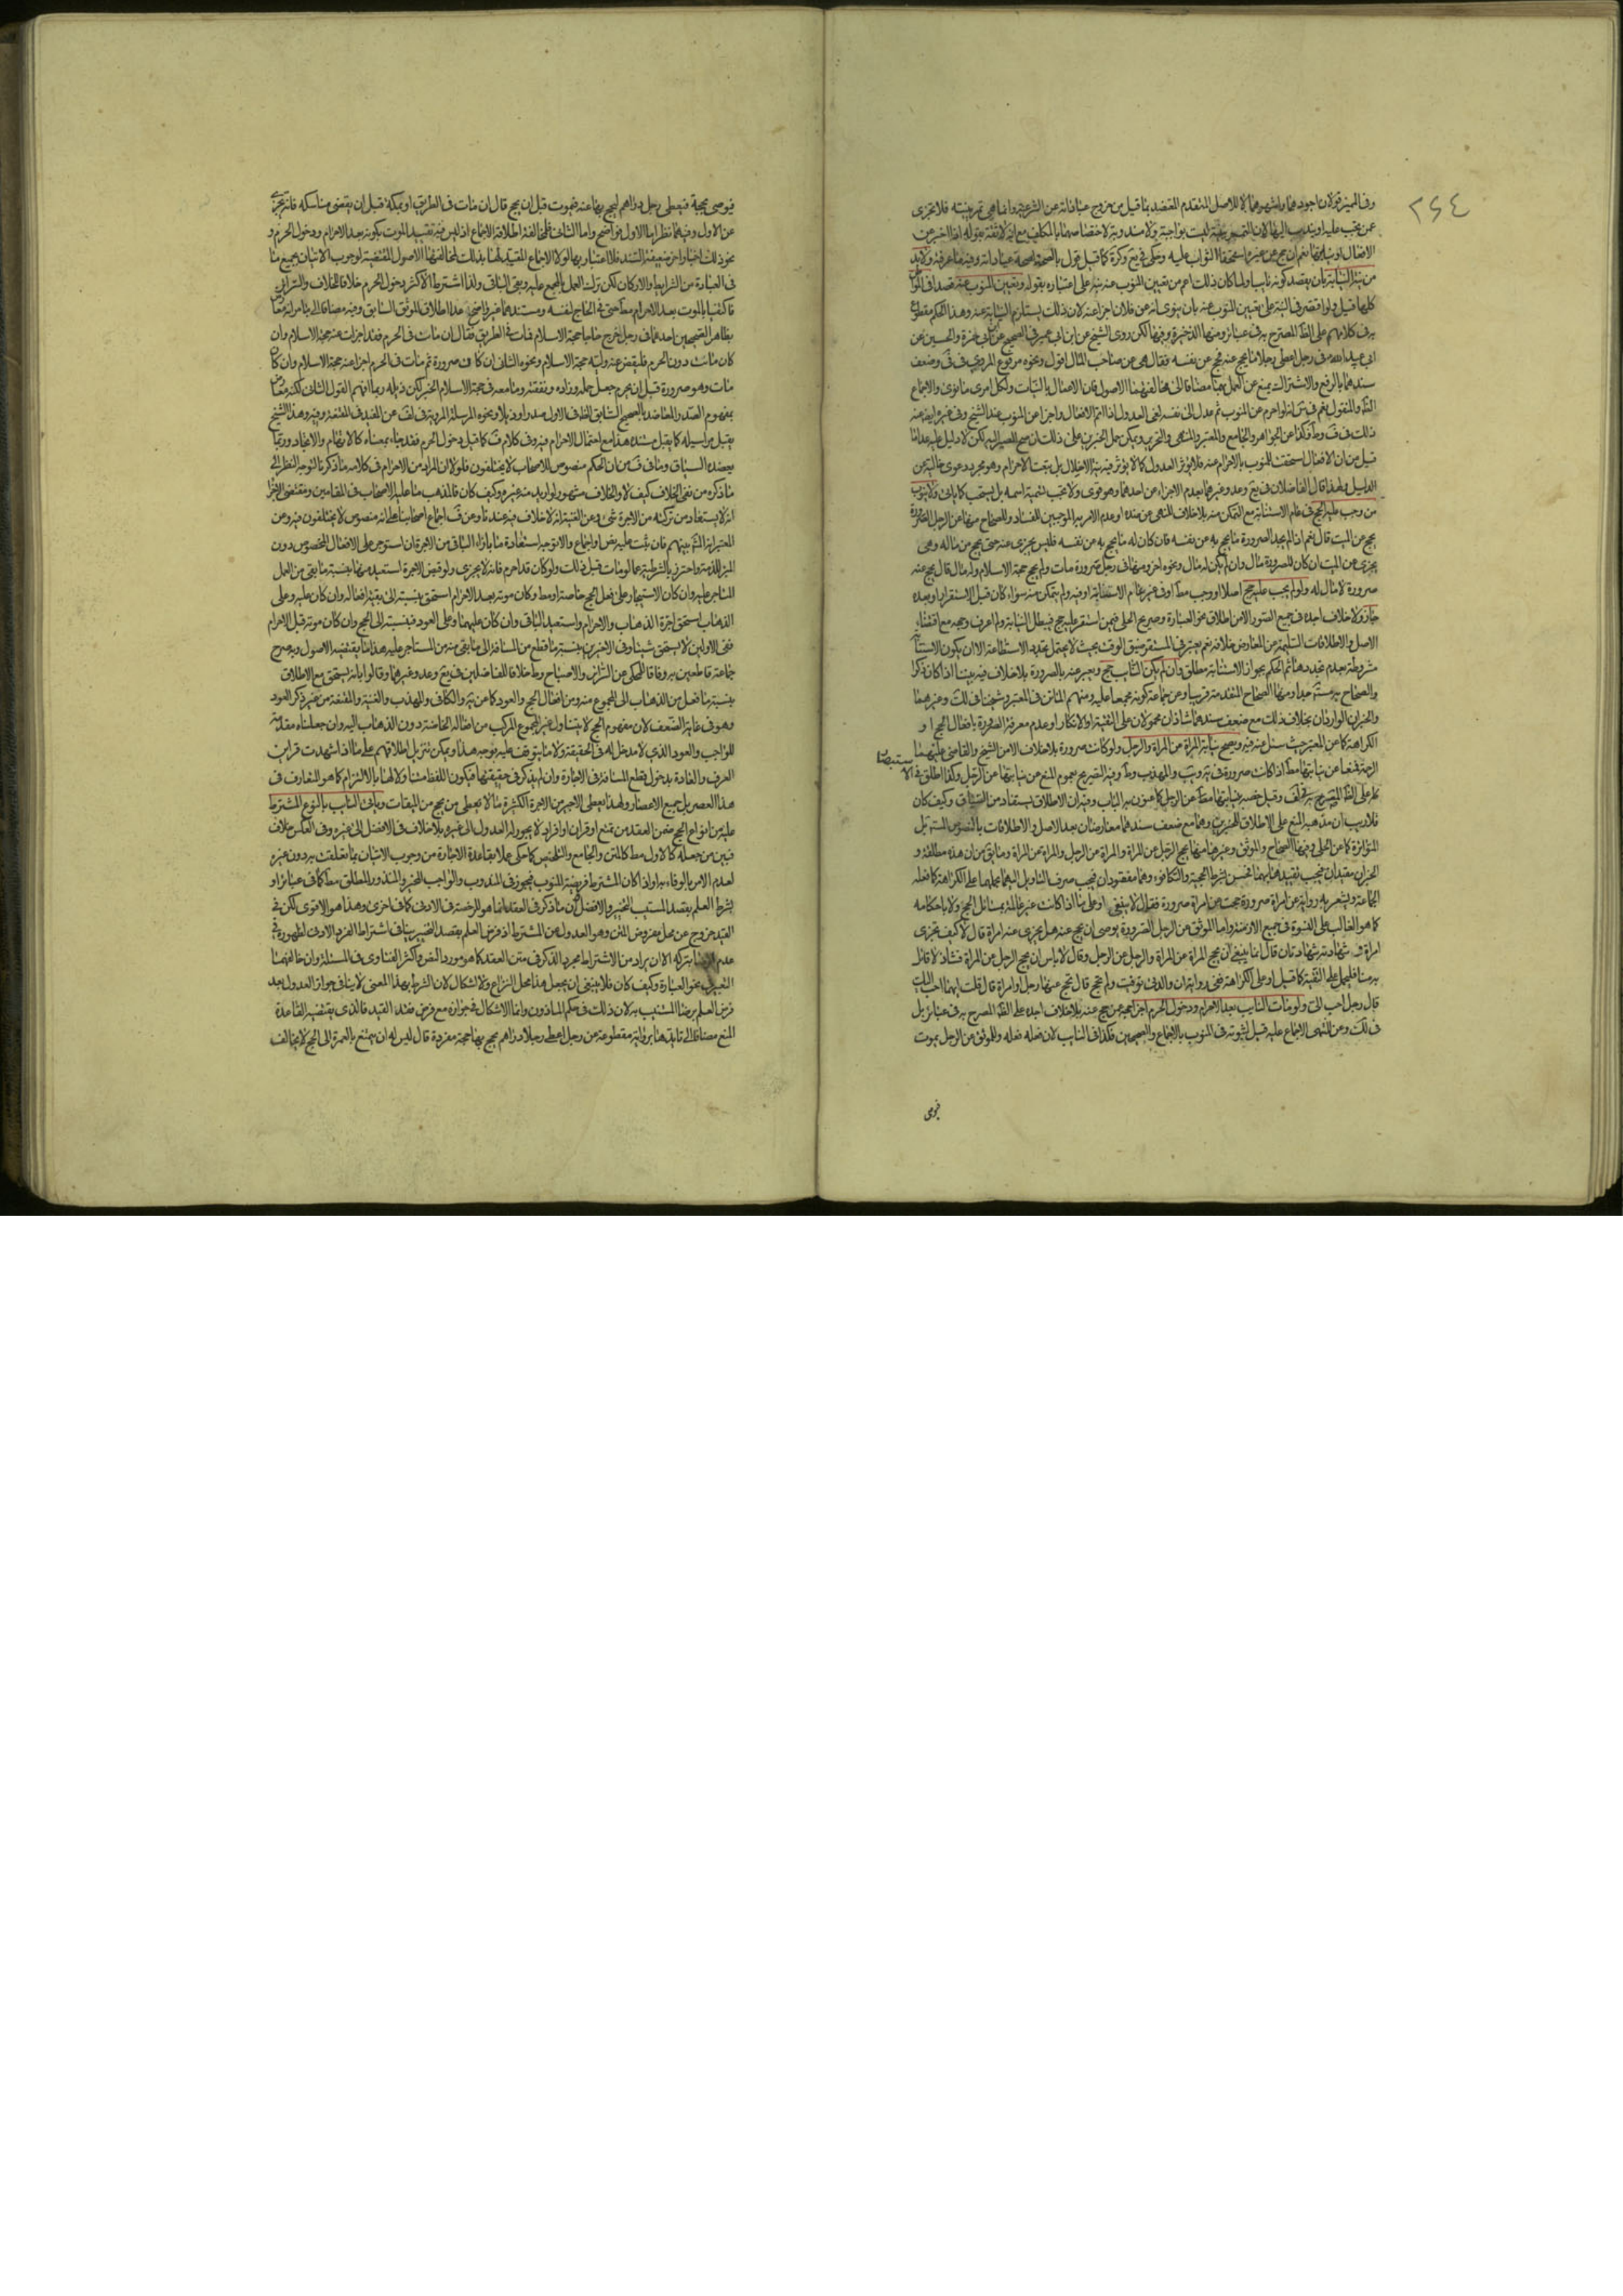 ٢٦٤
وفي المميز قولان اجودهما واشهرهما لا للاصل المتقدم المعتضد بما قيل من خروج عباداته عن الشرعية وانما هي تمرينية فلا تجزى
عن من يجب عليه او يندب اليها لان التمرينية ليست بواجبة ولا مندوبة لاختصاصهما بالمكلف مع انه لا ثقة بقوله اذا اخبر عن
الافعال او نيتها نعم ان حج عن غيره استحق الثواب عليه وحكى في يع وكره كما قيل قول بالصحة لصحة عباداته وفيه ما عرفته ولا بد
من نية النيابة بان يقصد كونه نايبا ولما كان ذلك اعم من تعيين المنوب عنه نبه على اعتباره بقوله وتعيين المنوب عنه قصدا في المواطن
كلها قيل ولو اقتصر في النية على تعيين المنوب عنه بان ينوى انه عن فلان اجزا عنه لان ذلك يستلزم النيابة عنه وهذا الحكم مقطوع
به في كلامهم على الظ المصرح به في عبائر ومنها الذخيرة وفيها لكن روى الشيخ عن ابن ابي عمير في الصحيح عن ابي حمزة والحسين عن
ابي عبد الله في رجل اعطى رجلا مالا يحج عنه فحج عن نفسه فقال هي عن صاحب المال اقول ونحوه مرفوع المروى في في وضعف
سندهما بالرفع والاشتراك يمنع عن العمل بهما مضافا الى مخالفتهما الاصول فان الاعمال بالنيات ولكل امرئ ما نوى والاجماع
الظ والمنقول نعم في انه لو احرم عن المنوب ثم عدل الى نفسه لغى العدول اذا اتم الافعال واجزا عن المنوب عند الشيخ وفي غيره
ذلك في ف وط وكذا عن الجواهر والجامع والمعتبر والمنتهى والتحرير ويمكن حمل الخبرين على ذلك ان صح المصير اليه لكن لا دليل عليه عدا ما
قيل من ان الافعال استحقت للمنوب بالاحرام عنه فلا يؤثر العدول كما لا يؤثر فيه نية الاخلال بل يتعب الاحرام وهو مجرد دعوى خالية عن
الدليل ولهذا قال الفاضلان في يع وعد وغيرهما بعدم الاجزاء عن احدهما وهو قوى ولا يجب تسمية اسمه بل يستحب كما ياتى ولا ينوب
من وجب عليه الحج في عام الاستنابة مع التمكن منه بلا خلاف للنهى عن ضده او عدم الامر به الموجبين للفساد وللصحاح منها عن الرجل الصرورة
يحج عن الميت قال نعم اذا لم يجد الصرورة ما يحج به عن نفسه فان كان له ما يحج به عن نفسه فليس يجزى عنه حتى يحج من ماله وهى
يجزى عن الميت ان كان للصرورة مال وان لم يكن له مال ونحوه اخر ومنها في رجل صرورة مات ولم يحج حجة الاسلام وله مال قال يحج عنه
صرورة لا مال له ولو لم يجب عليه حج اصلا او وجب مط او في غير عام الاستنابة او فيه ولم يتمكن منه سواء كان قبل الاستقرار او بعده
جاز ولا خلاف اجده في جميع الصور الا من اطلاق نحو العبارة وصريح الحلى فيمن استقر عليه حج فيبطل النيابة ولم اعرف وجهه مع اقتضاء
الاصل والاطلاقات السليمة عن المعارض خلافه نعم يعتبر في المستقر ضيق الوقت بحيث لا يحتمل تجدد الاستطاعة الا ان يكون الاستنابة
مشروطة بعدم تجددها ثم الحكم بجواز الاستنابة مطلق وان لم يكن النائب حج ويعبر عنه بالصرورة بلا خلاف فيه بيننا اذا كان ذكرا
والصحاح به مستفيضة ومنها الصحاح المتقدمة قريبا وعن جماعة كونه مجمعا عليه ومنهم الماتن في المعتبر وشيخنا في لك وغيرهما
والخبران الواردان بخلاف ذلك مع ضعف سندهما شاذان محمولان على التقية او الانكار او عدم معرفة الصرورة بافعال الحج او
الكراهة كما عن المعتبر حيث سئل عنه فيه ويصح نيابة المراة عن المراة والرجل ولو كانت صرورة بلا خلاف الا من الشيخ والقاضى عليهما
الرحمة فمنعا عن نيابتها مط اذا كانت صرورة في يه ويب والمهذب وط وفيه التصريح بعموم المنع من نيابتها عن الرجل وكذا اطلق في الاستبصار
على الظ المصرح به في لف وقيل خصه بنيابتها عن الرجل كما عنون به الباب وفيه ان الاطلاق يستفاد من السياق وكيف كان
فلا ريب ان مذهبه المنع على الاطلاق للخبرين وهما مع ضعف سندهما معارضان بعد الاصل والاطلاقات بالنصوص المستفيضة بل
المتواترة كما عن الحلى وفيها الصحاح والموثق وغيرها منها يحج الرجل عن المراة والمراة عن الرجل والمراة عن المراة وما يق من ان هذه مطلقة و
الخبران مقيدان فيجب تقييدها بهما فحسن بشرط الحجية والتكافوء وهما مفقودان فيجب صرف التاويل اليهما بحملهما على الكراهة كما فعله
الجماعة ويشعر به رواية عن امراة صرورة حجت عن امراة صرورة فقال لا ينبغى او على ما اذا كانت غير عالمة بمسائل الحج ولا باحكامه
كما هو الغالب على النسوة في جميع الازمنة واما الموثق عن الرجل الصرورة يوصى ان يحج عنه هل يجزى عنه امراة قال لا كيف تجزى
امراة وشهادته شهادتان قال انما ينبغى ان يحج المراة عن المراة والرجل عن الرجل وقال لا باس ان يحج الرجل عن المراة فشاذ لا قائل
به منا فليحمل على التقية كما قيل او على الكراهة ففى رواية ان والدتى توفيت ولم تحج قال يحج عنها رجل او امراة قال قلت ايهما احب اليك
قال رجل احب الى ولو مات النايب بعد الاحرام ودخول الحرم اجزأ حجه عمن حج عنه بلا خلاف اجده على الظ المصرح به في عبائر بل
في لك وعن المنتهى الاجماع عليه قيل لثبوته في المنوب بالاجماع والصحيحين فكذا في النايب لان فعله فعله وللموثق عن الرجل يموت
فيوصى
فيوصى بحجة فيعطى رجل دراهم ليحج بها عنه فيموت قبل ان يحج قال ان مات في الطريق او بمكة قبل ان يقضى مناسكه فانه يجزى
عن الاول وفيهما نظر اما الاول فواضح واما الثانى فلمخالفة اطلاقه الاجماع اذ ليس فيه تقييد الموت بكونه بعد الاحرام ودخول الحرم و
نحو ذلك اخبار اخر ضعيفة السند فلا اعتبار بها لولا الاجماع المقيد لها بذلك لمخالفتها الاصول المقتضية لوجوب الاتيان بجميع ما
في العبادة من الشرايط والاركان لكن ترك العمل بالمجمع عليه وبقى الباقى ولذا اشترط الاكثر دخول الحرم خلافا للخلاف والسرائر
فاكتفيا بالموت بعد الاحرام مط حتى في الحاج لنفسه ومستندهما غير واضح عدا اطلاق الموثق السابق وفيه مضافا الى ما مر انه معارض
بظاهر الصحيحين احدهما في رجل خرج حاجا حجة الاسلام فمات في الطريق فقال ان مات في الحرم فقد اجزات عنه حجة الاسلام وان
كان مات دون الحرم فليقض عنه وليه حجة الاسلام ونحوه الثانى ان كان صرورة ثم مات في الحرم اجزا عنه حجة الاسلام وان كان
مات وهو صرورة قبل ان يحرم جعل جمله وزاده ونفقته وما معه في حجة الاسلام الخبر لكن ذيله ربما افهم القول الثانى لكنه معارض
بمفهوم الصدر المعاضد بالصحيح السابق الظ في الاول صدرا وذيلا ونحوه المرسلة المروية في لف عن المفيد في المقنعة وفيه وهذا الشيخ
يقبل مراسيله كما يقبل مسنده هذا مع احتمال الاحرام فيه وفي كلام ف كما قيل دخول الحرم فقد جاء بمعناه كالاتهام والانجاد وربما
يعضده السياق وما في ف من ان الحكم منصوص للاصحاب لا يختلفون فلولا ان المراد من الاحرام في كلامه ما ذكرنا لتوجه النظر الى
ما ذكره من نفى الخلاف كيف لا والخلاف مشهور لو اريد منه غيره وكيف كان فالمذهب ما عليه الاصحاب في المقامين ومقتضى الاجزاء
انه لا يستعاد من تركته من الاجرة شئ وعن الغنية انه لا خلاف فيه عندنا وعن ف اجماع اصحابنا على انه منصوص لا يختلفون فيه وعن
المعتبر انه المش بينهم فان ثبت عليه نص او اجماع والا توجه استعادة ما بازاء الباقى من الاجرة ان استوجر على الافعال المخصوص دون
المبرئ للذمة واحترز بالشرطية عما لو مات قبل ذلك ولو كان قد احرم فانه لا يجزى ولو قبض الاجرة استعيد منها بنسبة ما بقى من العمل
المستاجر عليه وان كان الاستيجار على فعل الحج خاصة او مط وكان موته بعد الاحرام استحق بنسبته الى بقية افعاله وان كان عليه وعلى
الذهاب استحق اجرة الذهاب والاحرام واستعيد الباقى وان كان عليهما وعلى العود فبنسبته الى الجميع وان كان موته قبل الاحرام
ففى الاولين لا يستحق شيئا وفى الاخيرين بنسبة ما قطع من المسافة الى ما بقى منه من المستاجر عليه هذا ما يقتضيه الاصول وبه صرح
جماعة قاطعين به وفاقا للمحكى عن السرائر والاصباح وط خلافا للفاضلين في يع وعد وغيرهما وقالوا بانه يستحق مع الاطلاق
بنسبة ما فعل من الذهاب الى المجموع منه ومن افعال الحج والعود كما عن يه والكافى والمهذب والغنية والمقنعة من غير ذكر العود
وهو في غاية الضعف لان مفهوم الحج لا يتناول غير المجموع المركب من افعاله الخاصة دون الذهاب اليه وان جعلناه مقدمة
للواجب والعود الذى لا مدخل له في الحقيقة ولا ما يتوقف عليه توجه هذا ويمكن تنزيل اطلاقهم على ما اذا شهدت قرائن
العرف والعادة بدخول قطع المسافة في الاجارة وان لم يذكر في حقيقتها فيكون اللفظ متناولا لها بالالتزام كما هو المتعارف في
هذا العصر بل جميع الاعصار ولهذا يعطى الاجير من الاجرة الكثيرة ما لا يعطى من يحج من الميقات وياتى النايب بالنوع المشترط
عليه من انواع الحج ضمن العقد من تمتع او قران او افراد لا يجوز له العدول الى غيره بلا خلاف في الافضل الى غيره وفى العكس خلاف
فبين من جعله كالاول مط كالمتن والجامع والتلخيص كما حكى عملا بقاعدة الاجارة من وجوب الاتيان بما تعلقت به دون غيره
لعدم الامر بالوفاء به او اذا كان المشترط فريضة المنوب فيجوز في المندوب والواجب المخير والمنذور المطلق مط كما في عبائر او
بشرط العلم بقصد المستنيب التخيير والافضل وان ما ذكر في العقد انما هو للرخصة في الادنى كما في اخرى وهذا هو الاقوى لكن في
القيد خروج عن محل مفروض المتن وهو العدول عن المشترط اذ فرض العلم بقصد التخيير ينافى اشتراط الفرد الادنى لظهوره في
عدم الرضا بتركه الا ان يراد من الاشتراط مجرد الذكر في متن العقد كما هو مورد النص واكثر الفتاوى في المسئلة وان خالفهما
التعبير في نحو العبارة وكيف كان فلا ينبغى ان يجعل هذا محل النزاع والاشكال لان الشرط بهذا المعنى لا ينافى جواز العدول بعد
فرض العلم برضا المستنيب به لان ذلك في حكم الماذون وانما الاشكال في جوازه مع فرض فقد القيد فالذى يقتضيه القاعدة
المنع مضافا الى تايده هنا برواية مقطوعة عن رجل اعطى رجلا دراهم يحج بها حجة مفردة قال ليس له ان يتمتع بالعمرة الى الحج لا يخالف